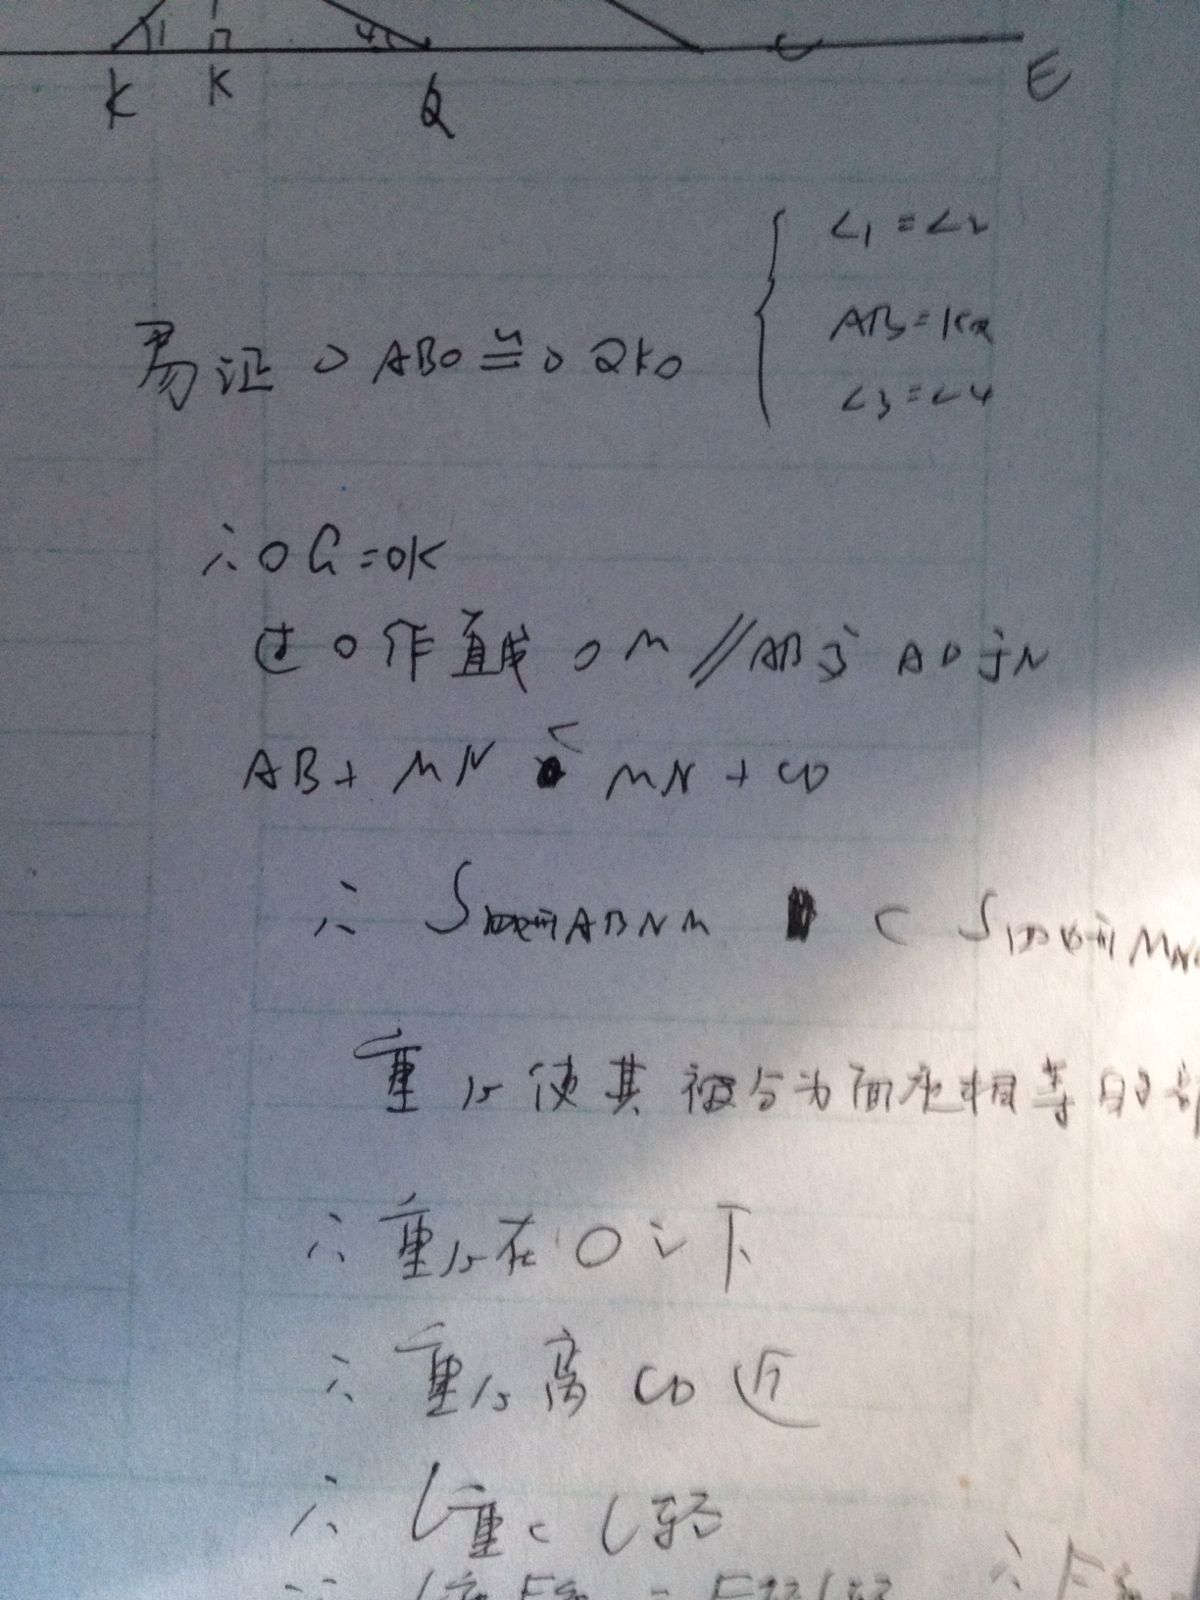 1 4
K K Q E
∠1=∠2
AB=KQ
易证 △ABO≌△QKO
∠3=∠4
∴OG=OK
过O作直线 OM//AB交AD于N
AB+MN < MN+CD
∴ S四边形ABNM < S四边形MN
重心使其被分为面积相等的部
∴重心在O之下
∴重心离CD近
∴ l重<l轻